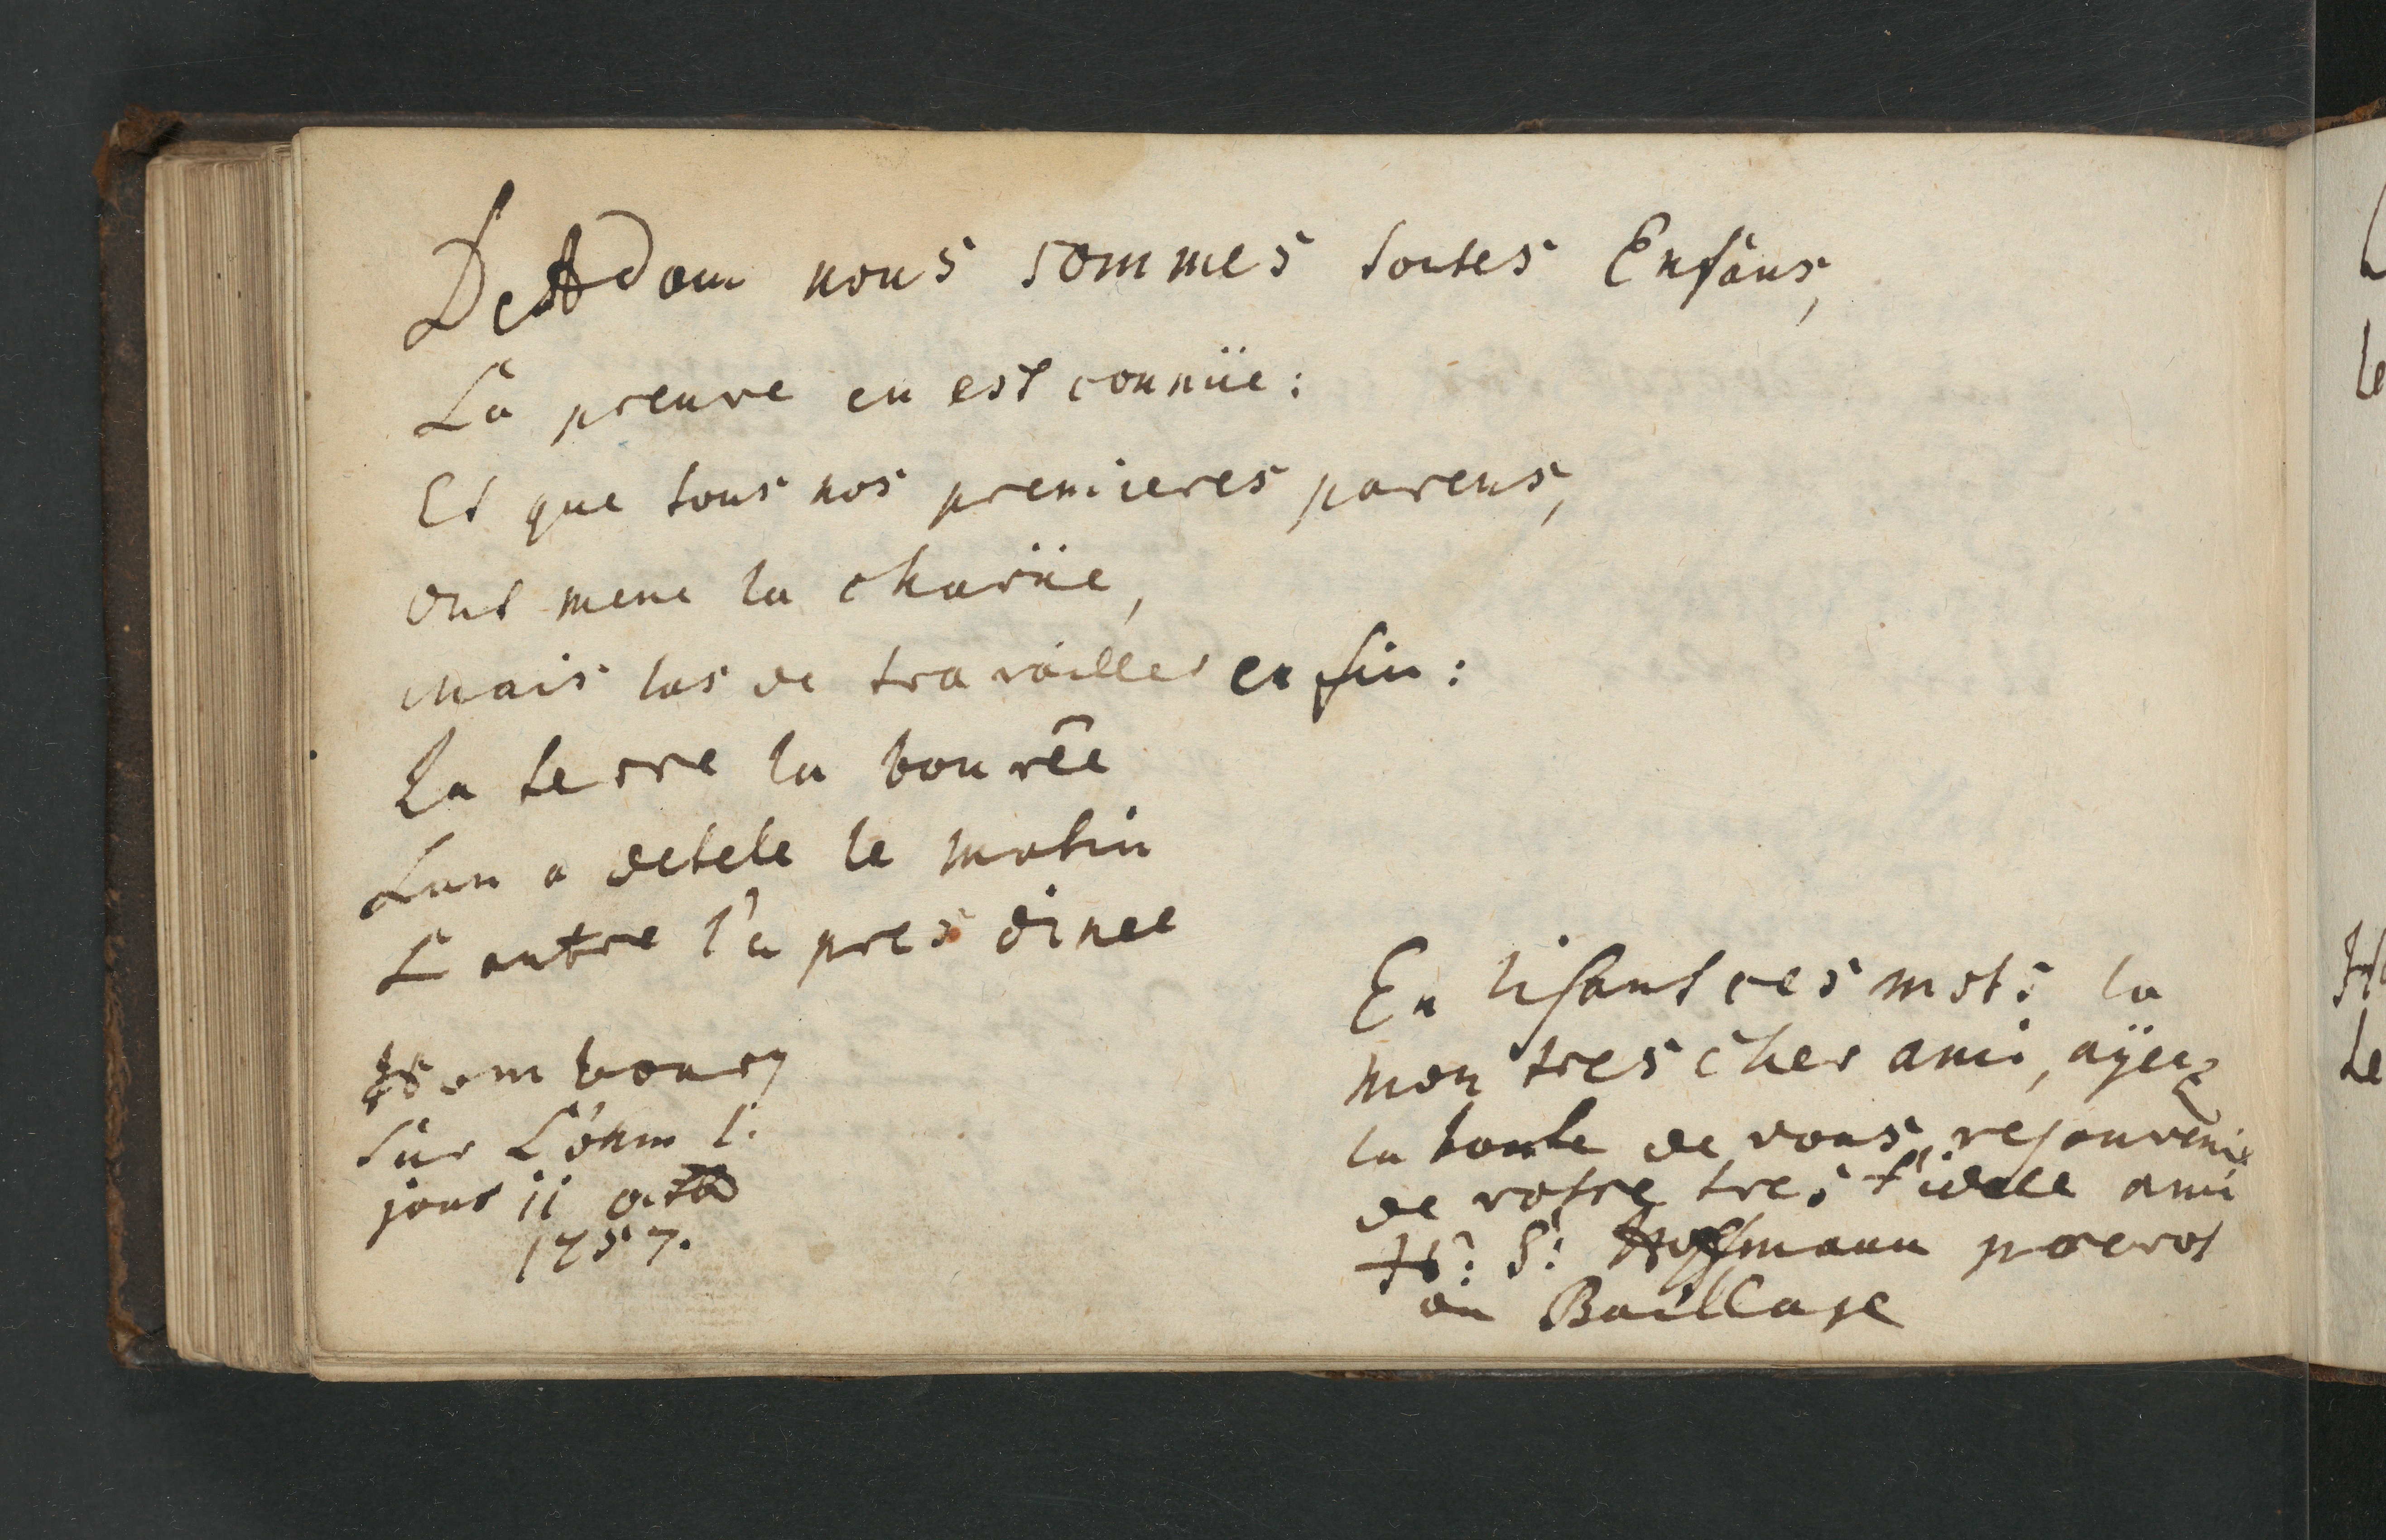 De Adam nous sommes toutes Enfâns,
La preuve en est connüe:
Et que tous nos premieres parens,
ont mene la charüe,
Mais las de travailler en fin:
La terre la bourêe
Lun a detele le matin
L autre l'a pres dinee
Hombourg
sur L'ohm l.
jour 11 octb
1757.
En lisant ces mots la
mon tres cher ami, aÿez
la bonte de vous resouvenir
de votre tres fidele ami
H: S: Hoffmann
au Baillage
L
le
Ho
Le